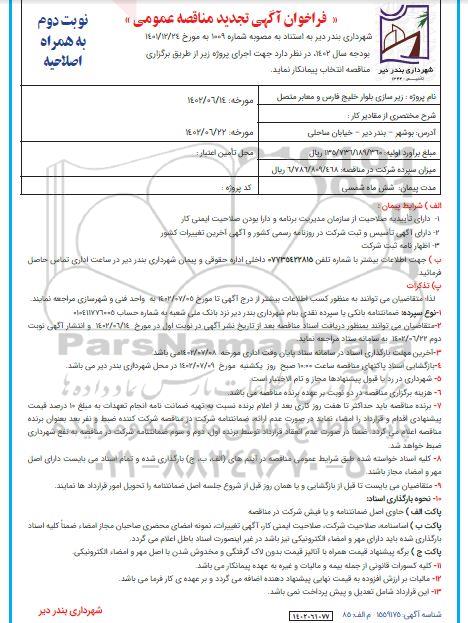 « فراخوان آگهی تجدید مناقصه عمومی »
نوبت دوم
به همراه
اصلاحیه
شهرداری بندر دیر به استناد به مصوبه شماره ۱۰۰۹ به مورخ ۱۴۰۱/۱۲/۲۴
بودجه سال ۱۴۰۲، در نظر دارد جهت اجرای پروژه زیر از طریق برگزاری
مناقصه انتخاب پیمانکار نماید.
شهرداری بندر دیر
نام پروژه : زیر سازی بلوار خلیج فارس و معابر متصل
مورخه: ۱۴۰۲/۰۶/۱۴
شرح مختصری از مقادیر کار :
آدرس: بوشهر – بندر دیر – خیابان ساحلی
مورخه: ۱۴۰۲/۰۶/۲۲
مبلغ برآورد اولیه: ۱۳۵/۷۳۶/۱۸۹/۳۶۰ ریال
محل تأمین اعتبار :
میزان سپرده شرکت در مناقصه: ۶/۷۸۶/۸۰۹/۴۶۸ ریال
مدت پیمان: شش ماه شمسی
کد پروژه :
الف ) شرایط پیمان :
۱- دارای تأییدیه صلاحیت از سازمان مدیریت برنامه و دارا بودن صلاحیت ایمنی کار
۲- دارای آگهی تأسیس و ثبت شرکت در روزنامه رسمی کشور و آگهی آخرین تغییرات کشور
۳- اظهار نامه ثبت شرکت
ب ) جهت اطلاعات بیشتر با شماره تلفن ۰۷۷۳۵۴۲۲۸۱۵ داخلی اداره حقوقی و پیمان شهرداری بندر دیر در ساعت اداری تماس حاصل
فرمائید.
پ) تذکرات
لذا، متقاضیان می توانند به منظور کسب اطلاعات بیشتر از درج آگهی تا مورخ ۱۴۰۲/۰۷/۰۵ به واحد فنی و شهرسازی مراجعه نمایند.
۱-نوع سپرده: ضمانتنامه بانکی یا سپرده نقدی بنام شهرداری بندر دیر نزد بانک ملی شعبه به شماره حساب ۰۱۰۴۱۱۷۷۶۰۰۵
۲-متقاضیان می توانند بمنظور دریافت اسناد مناقصه بعد از تاریخ نشر آگهی در نوبت اول در مورخ ۱۴۰۲/۰۶/۱۴ و انتشار آگهی نوبت
دوم ۱۴۰۲/۰۶/۲۲ به سامانه ستاد مراجعه نماید.
۳-آخرین مهلت بارگذاری اسناد در سامانه ستاد پایان وقت اداری مورخه ۱۴۰۲/۰۷/۰۸می باشد
۴-بازگشایی اسناد پاکتهای مناقصه ساعت ۱۰:۰۰ صبح روز یکشنبه مورخ ۱۴۰۲/۰۷/۰۹ در محل شهرداری بندر دیر می باشد.
۵- شهرداری در رد یا قبول پیشنهادها مجاز و تام الاختیار است.
۶- هزینه برگزاری مناقصه در دو نوبت بر عهده برنده مناقصه می باشد.
۷- برنده مناقصه باید حداکثر تا هفت روز کاری بعد از اعلام برنده نسبت به تهیه ضمانت نامه انجام تعهدات به مبلغ ۱۰ درصد قیمت
پیشنهادی اقدام و قرارداد را امضاء نماید در صورت عدم ارائه، ضمانتنامه شرکت در مناقصه شرکت کننده ضبط و نفر بعد بعنوان برنده
مناقصه اعلام می گردد. ضمناً در صورت عدم انعقاد قرارداد توسط برنده اول، دوم و سوم ضمانتنامه شرکت در مناقصه به نفع شهرداری
ضبط خواهد شد.
۸- کلیه اسناد خواسته شده طبق شرایط عمومی مناقصه در آیتم های (الف، ب، ج) بارگذاری شده و تمام اسناد می بایست دارای اصل
مهر و امضاء مجاز باشند.
۹- متقاضیان می بایست تا قبل از بازگشایی و یا همان روز قبل از شروع جلسه اصل ضمانتنامه را تحویل امور قرارداد ها نمایند.
۱۰- نحوه بارگذاری اسناد:
پاکت الف ) حاوی اصل ضمانتنامه و یا فیش شرکت در مناقصه
پاکت ب ) اساسنامه، صلاحیت شرکت، صلاحیت ایمنی کار، آگهی تغییرات، نمونه امضای محضری صاحبان مجاز امضاء ضمناً کلیه اسناد
بارگذاری شده باید دارای مهر و امضاء الکترونیکی نیز باشد در غیر اینصورت اسناد باطل اعلام می گردد.
پاکت ج ) برگه پیشنهاد قیمت همراه با آنالیز قیمت بدون لاک گرفتگی و مخدوش شدن با اصل مهر و امضاء الکترونیکی.
۱۱- کلیه کسورات قانونی از جمله بیمه و مالیات و غیره به عهده پیمانکار می باشد.
۱۲- مالیات بر ارزش افزوده به قیمت نهایی پیشنهاد دهنده اضافه می گردد و بر عهده ی کار فرما می باشد.
۱۳- این قرارداد شامل تعدیل و پیش پرداخت نمی باشد.
شناسه آگهی: ۱۵۵۹۱۷۵ م الف: ۸۵
۱۴۰۲-۶۱-۰۷۷
شهرداری بندر دیر